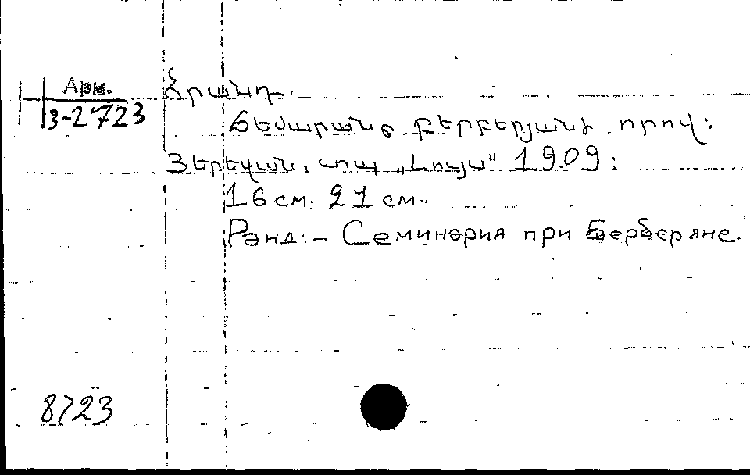 Арм.
3-2723
Հրանդ.
Ճեմարանը Բերբերյանի որով:
Յերեվան, տպ „Լույս" 1909:
16 см. 21 см.
Рэнд:- Семинория при Берберяне.
8723